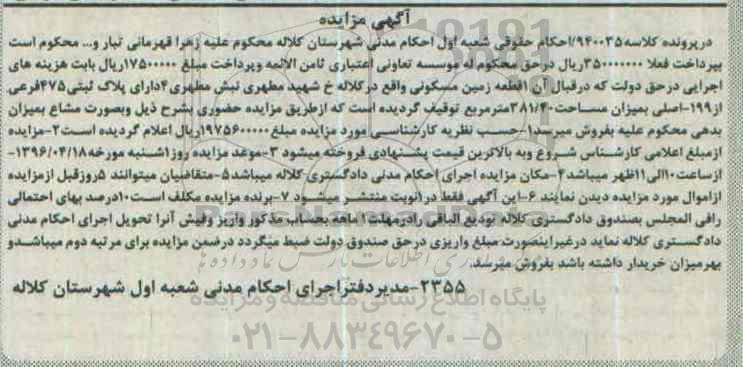 آگهی مزایده
درپرونده کلاسه۹۴۰۰۳۵/احکام حقوقی شعبه اول احکام مدنی شهرستان کلاله محکوم علیه زهرا قهرمانی تبار و... محکوم است
بپرداخت فعلا ۳۵۰۰۰۰۰۰۰ریال درحق محکوم له موسسه تعاونی اعتباری ثامن الائمه وپرداخت مبلغ ۱۷۵۰۰۰۰۰ریال بابت هزینه های
اجرایی درحق دولت که درقبال آن ۱قطعه زمین مسکونی واقع درکلاله خ شهید مطهری نبش مطهری۴دارای پلاک ثبتی۴۷۵فرعی
از۱۹۹-اصلی بمیزان مساحت۳۸۱/۴۰مترمربع توقیف گردیده است که ازطریق مزایده حضوری بشرح ذیل وبصورت مشاع بمیزان
بدهی محکوم علیه بفروش میرسد۱-حسب نظریه کارشناسی مورد مزایده مبلغ۱۹۷۵۶۰۰۰۰۰ریال اعلام گردیده است۲-مزایده
ازمبلغ اعلامی کارشناس شروع وبه بالاترین قیمت پیشنهادی فروخته میشود ۳-موعد مزایده روز۱شنبه مورخه۱۳۹۶/۰۴/۱۸-
ازساعت۱۰الی۱۱ظهر میباشد۴-مکان مزایده اجرای احکام مدنی دادگستری کلاله میباشد۵-متقاضیان میتوانند ۵روزقبل ازمزایده
ازاموال مورد مزایده دیدن نمایند ۶-این آگهی فقط در۱نوبت منتشر میشود ۷-برنده مزایده مکلف است۱۰درصد بهای احتمالی
رافی المجلس بصندوق دادگستری کلاله تودیع الباقی رادرمهلت۱ماهه بحساب مذکور واریز وفیش آنرا تحویل اجرای احکام مدنی
دادگستری کلاله نماید درغیراینصورت مبلغ واریزی درحق صندوق دولت ضبط میگردد درضمن مزایده برای مرتبه دوم میباشدو
بهرمیزان خریدار داشته باشد بفروش میرسد.
۲۳۵۵-مدیردفتراجرای احکام مدنی شعبه اول شهرستان کلاله
پایگاه اطلاع رسانی مناقصه و مزایده
۰۲۱-۸۸۳۴۹۶۷۰-۵